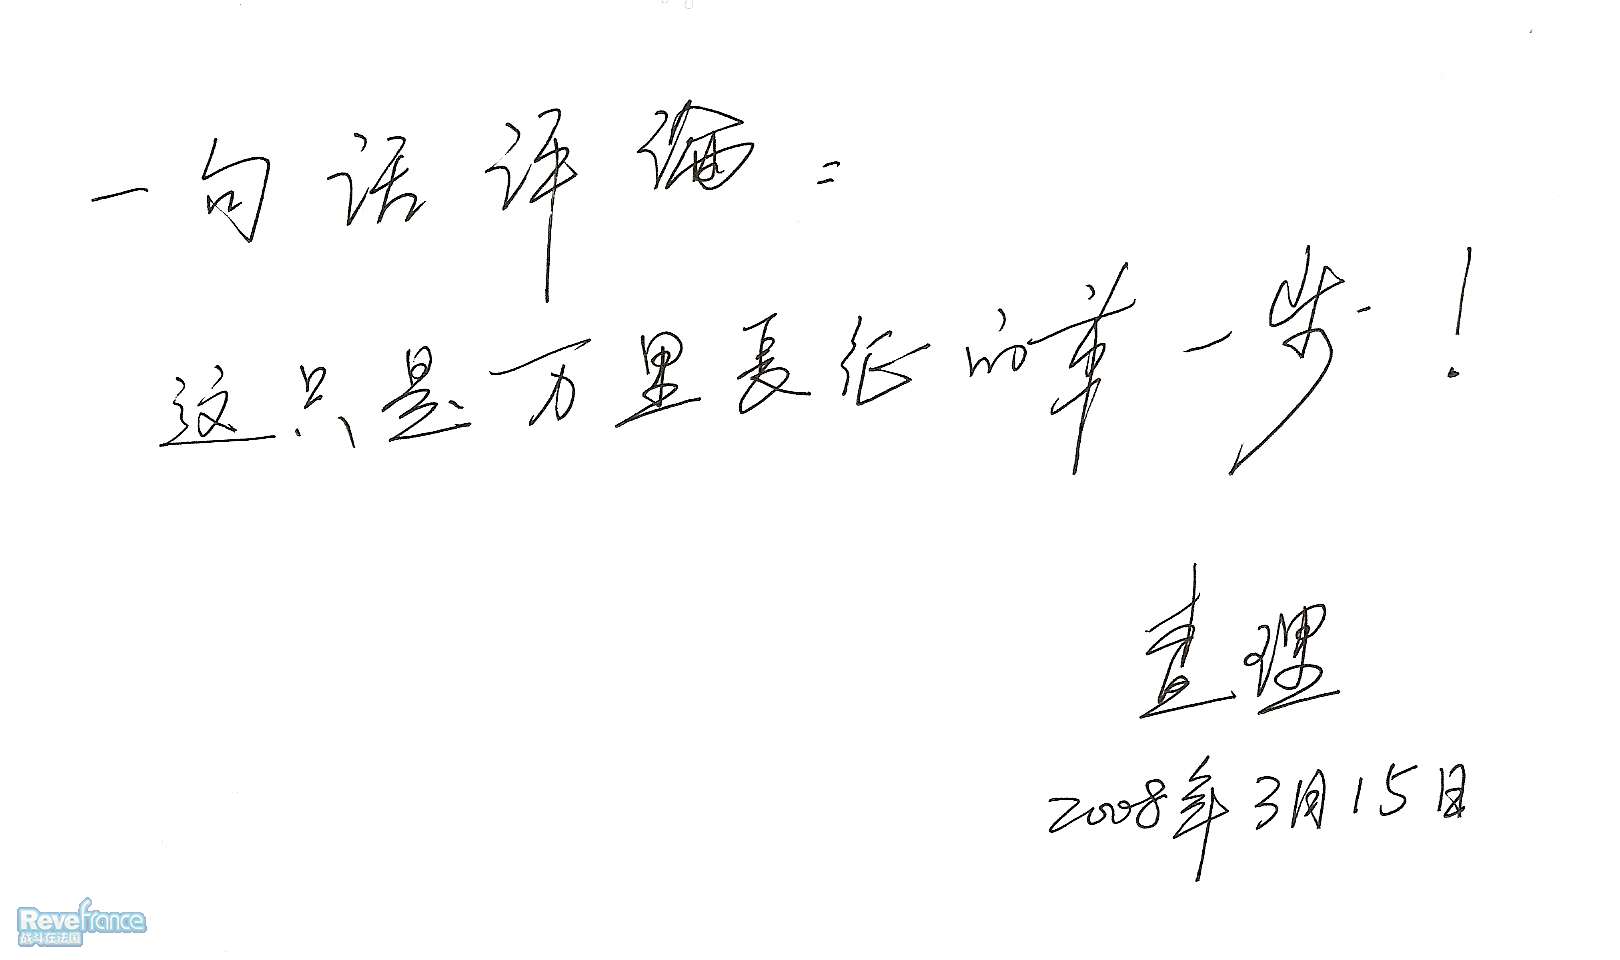 一句话评论:
这只是万里长征的第一步!
查理
2008年3月15日
Revefrance
战斗在法国